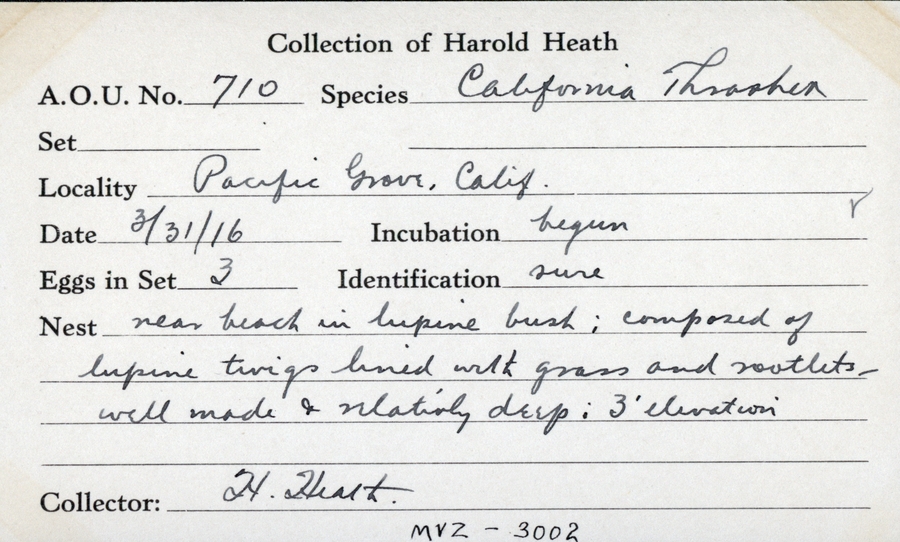 Collection of Harold Heath
A.O.U. No. 710 Species California Thrasher
Set
Locality Pacific Grove, Calif.
Date 3/31/16 Incubation begun
Eggs in Set 3 Identification sure
Nest near beach in lupine bush; composed of
lupine twigs lined with grass and rootlets–
well made & relatively deep; 3' elevation
Collector: H. Heath.
MVZ - 3002